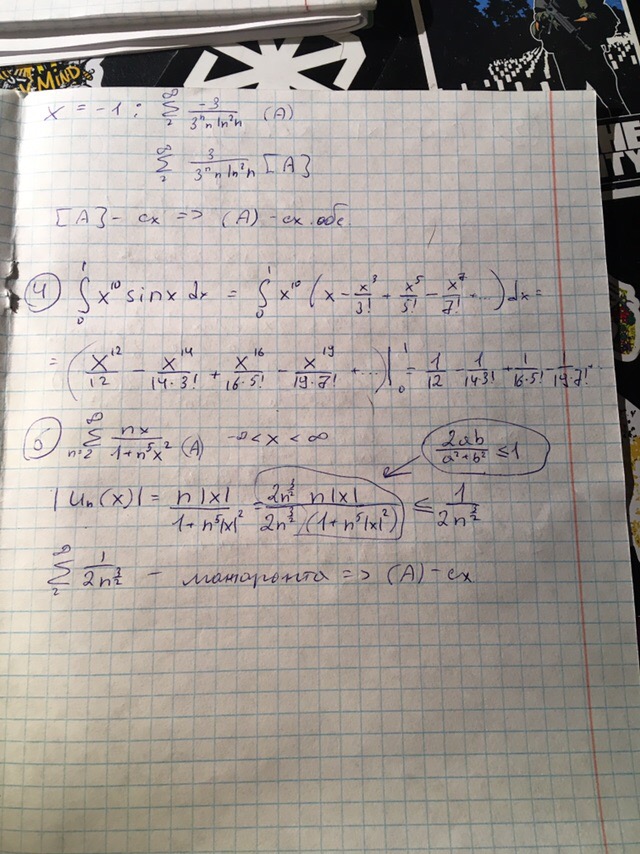 MIND
x = -1 : ∞ Σ 2 -3/(3ⁿ n ln²n) (A)
∞ Σ 2 3/(3ⁿ n ln²n) [A]
[A] - сх => (A) - сх. абс.
4 ∫₀¹ x¹⁰ sinx dx = ∫₀¹ x¹⁰ (x - x³/3! + x⁵/5! - x⁷/7! + ...) dx =
= (x¹²/12 - x¹⁴/(14·3!) + x¹⁶/(16·5!) - x¹⁹/(19·7!) + ...)|₀¹ = 1/12 - 1/(14·3!) + 1/(16·5!) - 1/(19·7!) + ...
5 ∞ Σ n=2 nx/(1+n⁵x²) (A) -∞ < x < ∞ 2ab/(a²+b²) ≤ 1
|Uₙ(x)| = n|x|/(1+n⁵|x|²) = 2n^(3/2) n|x|/(2n^(3/2) (1+n⁵|x|²)) ≤ 1/(2n^(3/2))
∞ Σ 2 1/(2n^(3/2)) - мажоранта => (A) - сх